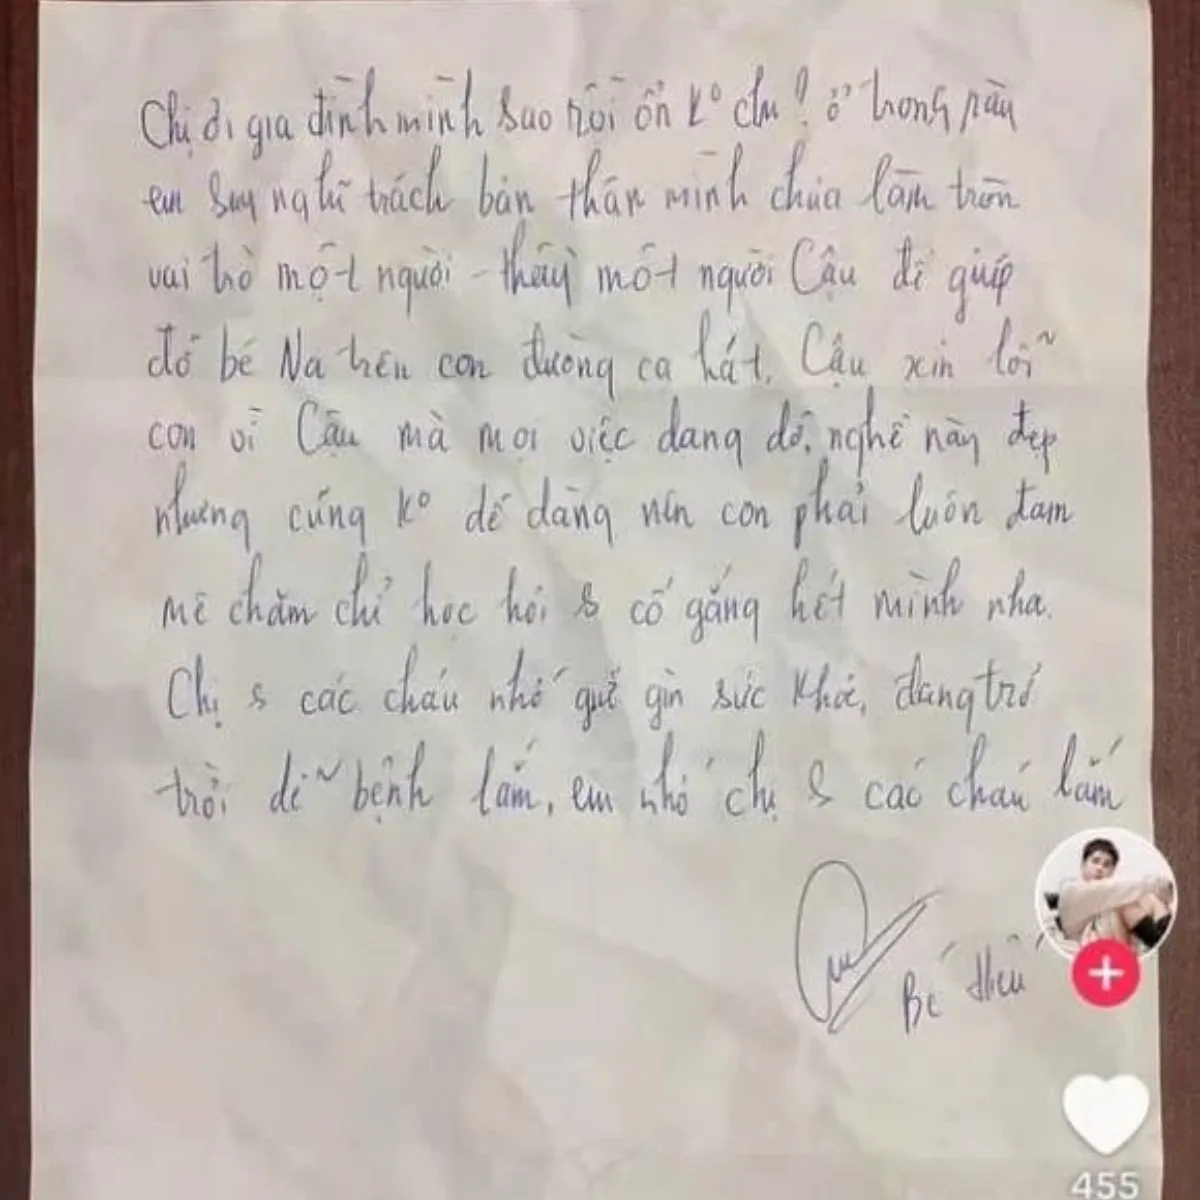 Chị ơi gia đình mình sao rồi ổn ko chị? ở trong này
em suy nghĩ trách bản thân mình chưa làm tròn
vai trò một người thầy một người Cậu để giúp
đỡ bé Na trên con đường ca hát. Cậu xin lỗi
con vì Cậu mà mọi việc dang dở, nghề này đẹp
nhưng cũng ko dễ dàng nên con phải luôn đam
mê chăm chỉ học hỏi & cố gắng hết mình nha.
Chị & các cháu nhớ giữ gìn sức khỏe, đang trở
trời dễ bệnh lắm, em nhớ chị & các cháu lắm
Bé Hiếu
455